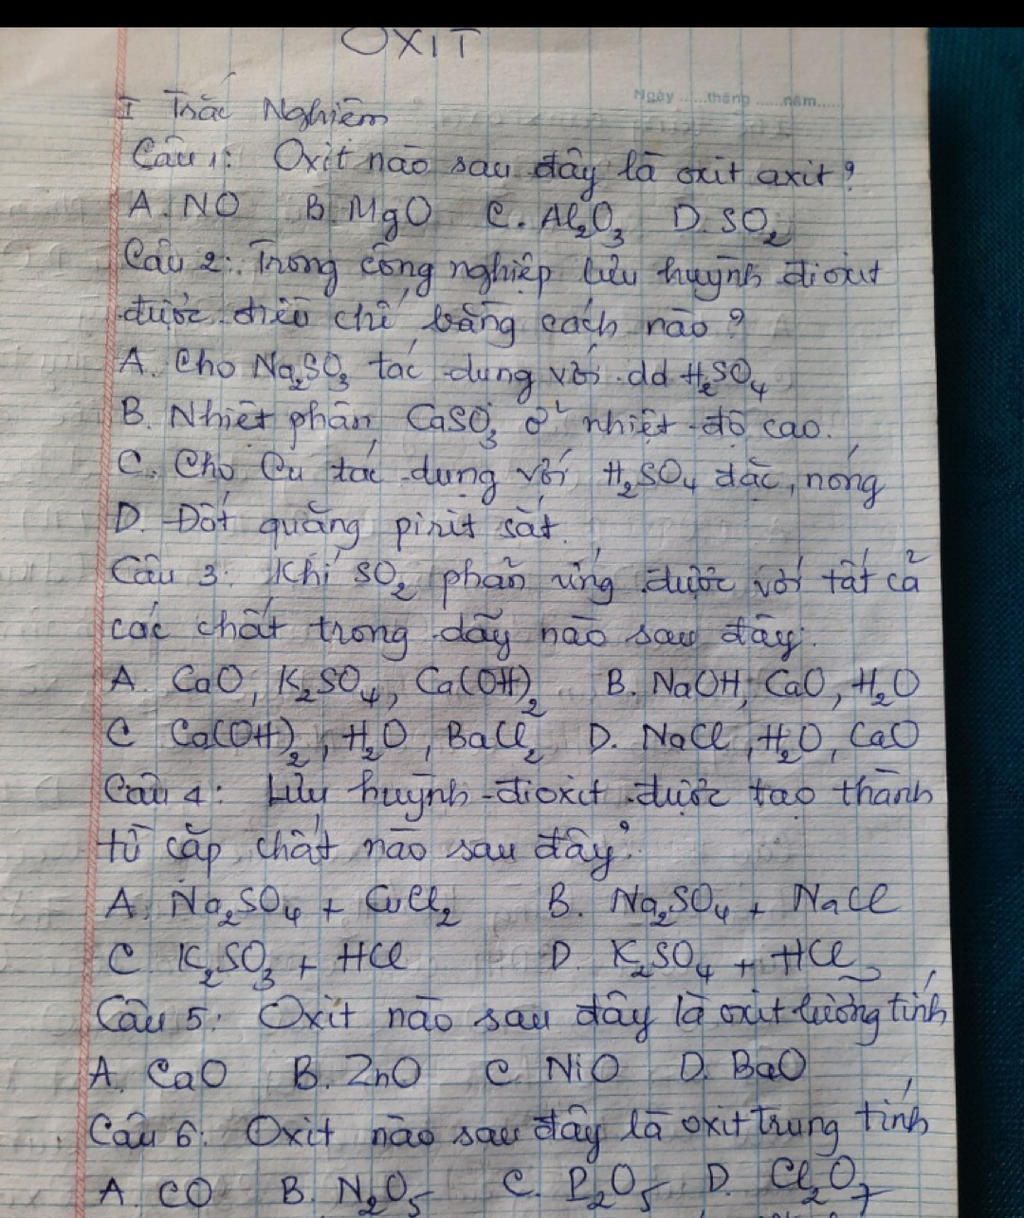 OXIT
Ngày......tháng......năm......
I Trắc Nghiệm
Câu 1: Oxit nào sau đây là oxit axit?
A. NO B. MgO C. Al₂O₃ D. SO₂
Câu 2: Trong công nghiệp lưu huỳnh đioxit
được điều chế bằng cách nào?
A. Cho Na₂SO₃ tác dụng với dd H₂SO₄
B. Nhiệt phân CaSO₃ ở nhiệt độ cao.
C. Cho Cu tác dụng với H₂SO₄ đặc, nóng
D. Đốt quặng pirit sắt.
Câu 3: Khí SO₂ phản ứng được với tất cả
các chất trong dãy nào sau đây:
A. CaO, K₂SO₄, Ca(OH)₂ B. NaOH, CaO, H₂O
C Ca(OH)₂, H₂O, BaCl₂ D. NaCl, H₂O, CaO
Câu 4: Lưu huỳnh đioxit được tạo thành
từ cặp chất nào sau đây?
A. Na₂SO₄ + CuCl₂ B. Na₂SO₄ + NaCl
C. K₂SO₃ + HCl D. K₂SO₄ + HCl
Câu 5: Oxit nào sau đây là oxit lưỡng tính
A. CaO B. ZnO C. NiO D. BaO
Câu 6: Oxit nào sau đây là oxit trung tính
A. CO B. N₂O₅ C. P₂O₅ D. Cl₂O₇